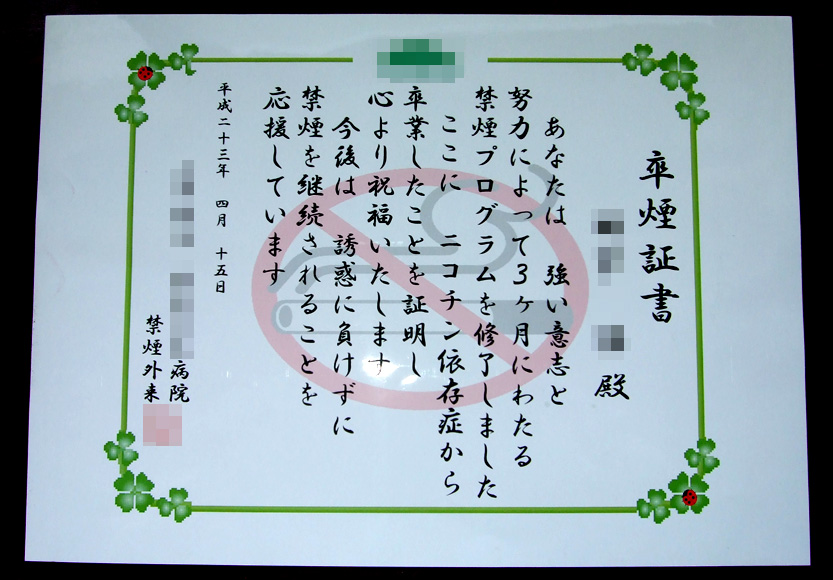 卒煙証書
殿
あなたは 強い意志と
努力によって3ヶ月にわたる
禁煙プログラムを修了しました
ここに ニコチン依存症から
卒業したことを証明し
心より祝福いたします
今後は 誘惑に負けずに
禁煙を継続されることを
応援しています
平成二十三年 四月 十五日
病院
禁煙外来